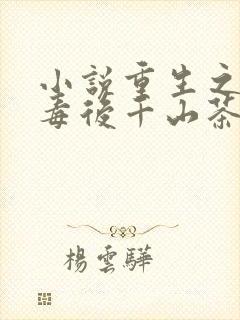 小說重生之
毒後千山茶
楊雲驊